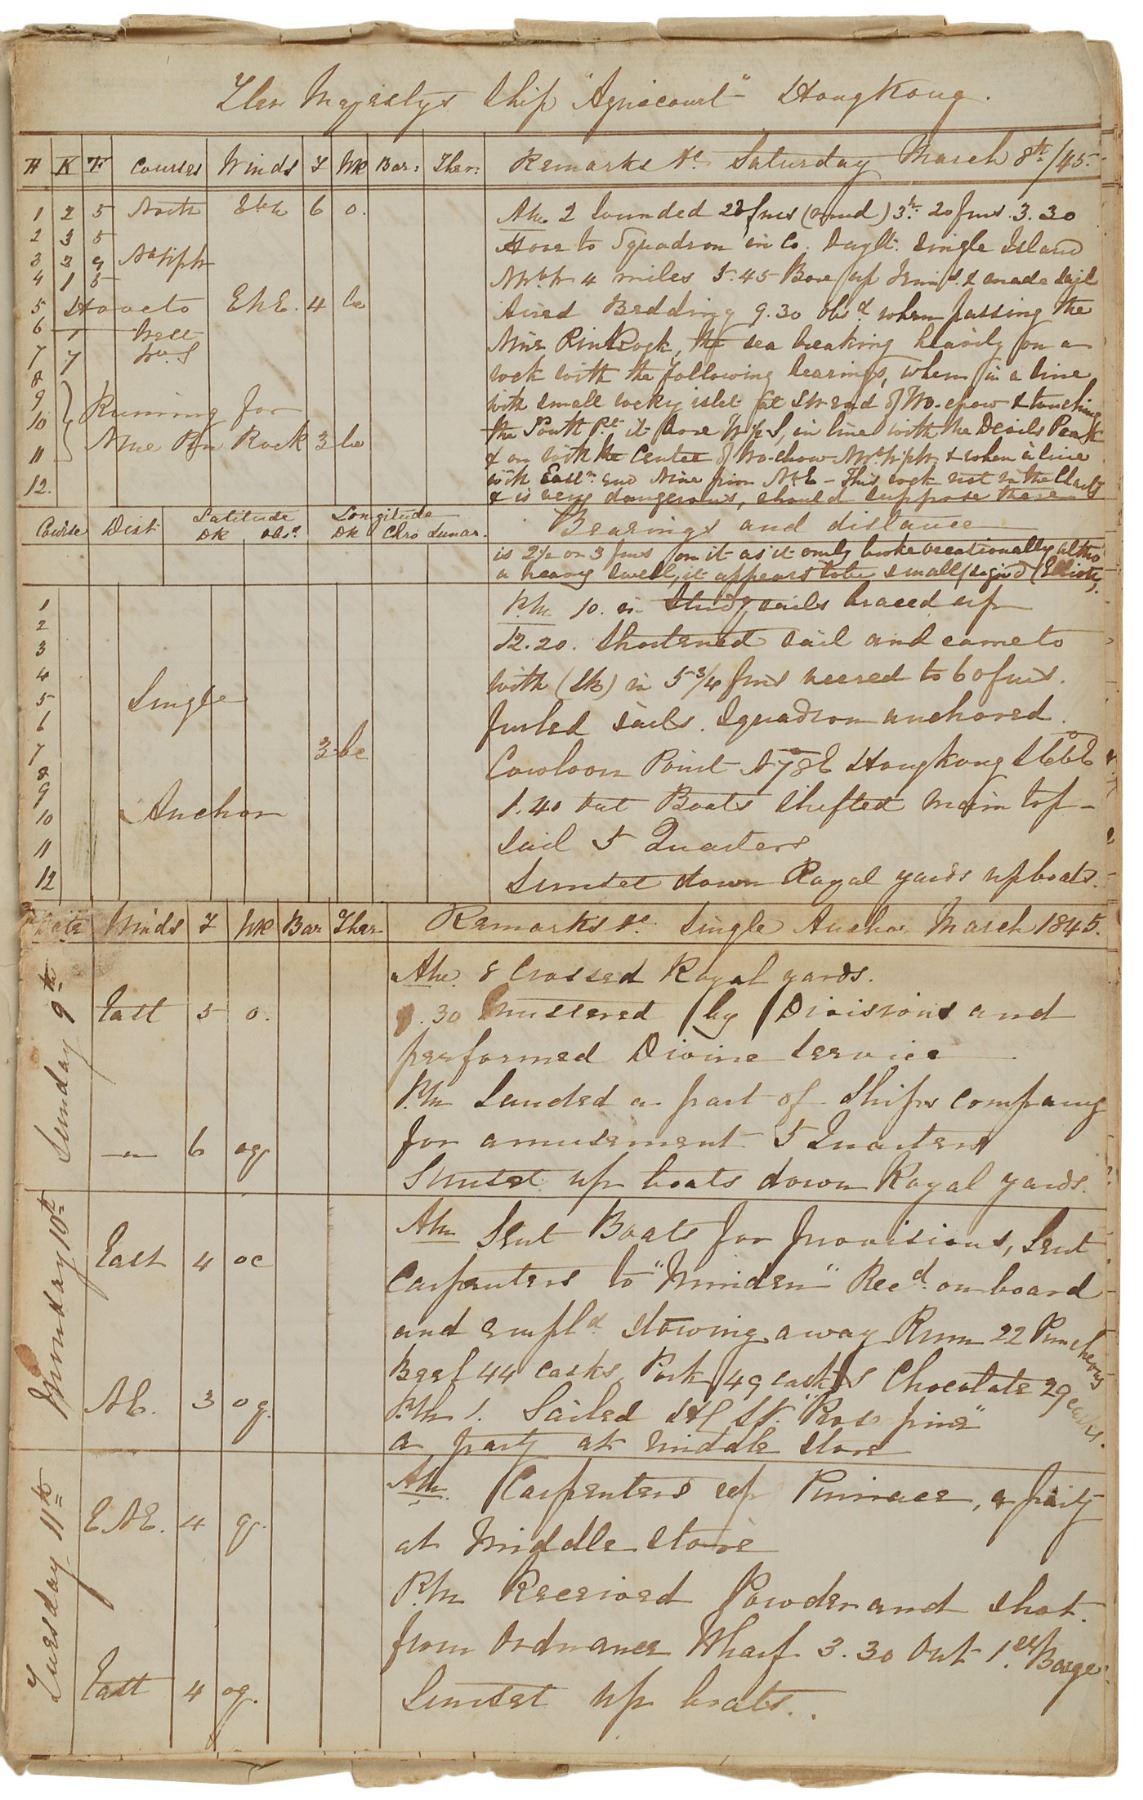 Her Majestys Ship "Agincourt" HongKong.
H K F Courses Winds F We Bar: Ther: Remarks &c Saturday March 8th/45.
1 2 5 North EbN 6 o.
2 3 5
3 2 4
4 1 5
5 Hove to ENE. 4 bc
6 1 West
7 7
8
9 Running for
10
11 Nine Pin Rock 3 bc
12.
Am. 2 sounded 22 fms (mud) 3h. 20 fms. 3.30
Hove to Squadron in Co. Daylt. Single Island
4 miles 5.45 Bore up & made sail
Aired Bedding 9.30 Obsd when passing the
Nine Pin Rock, the sea breaking heavily on a
rock with the following bearings, when in a line
with small rocky islet at SW end of Wo-chow & touching
the South Pt it bore W½S, in line with the Devils Peak
& on with the Center of Wo-chow & when in line
with Eastn end Nine pin - This rock not in the Charts
& is very dangerous, should suppose there
Course Dist Latitude Longitude Bearings and distance
DR Obs. DR Chro Lunar.
is 2½ or 3 fms on it as it only broke occationally altho
a heavy swell, it appears to be small (signd) (Elliott)
1
2
3
4
5
6
7
8
9
10
11
12
Single
3 bc
Anchor
Pm 10. in Studg sails braced up
12.20. Shortened sail and came to
with (Sb) in 5 3/4 fms veered to 60 fms.
furled sails. Squadron anchored.
Cowloon Point N78E HongKong S66E
1.40 out Boats shifted Main top-
sail 5 Quarters
Sunset down Royal yards up boats.
Date Winds F We Bar Ther Remarks &c Single Anchor March 1845.
Sunday 9th
East 5 o.
Am. 8 Crossed Royal yards.
9.30 Mustered by Divisions and
performed Divine Service
Pm Landed a part of Ships Company
for amusement 5 Quarters
–"– 6 og
Sunset up boats down Royal yards.
Monday 10th
East 4 oc
Am Sent Boats for provisions, Sent
Carpenters to "Minden" Recd on board
and empld stowing away Rum 22 Puncheons
Beef 44 casks Pork 49 casks Chocolate 29 cases.
NE. 3 og.
Pm 1. Sailed HC St. "Proserpine"
a party at middle store
Tuesday 11th
ENE. 4 og.
Am. Carpenters rep Pinnace, a party
at Middle store
Pm Received Powder and shot.
from Ordnance Wharf 3.30 Out 1 Barge
East 4 og.
Sunset up boats..